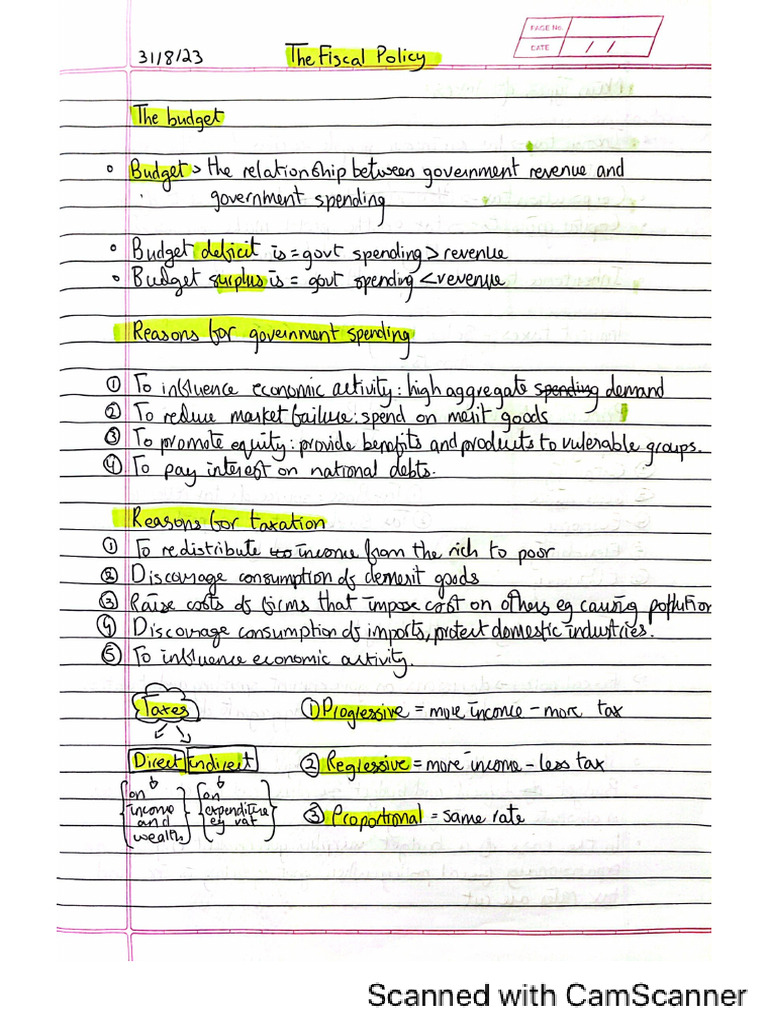 PAGE No.
DATE / /
31/8/23 The Fiscal Policy
The budget
Budget > the relationship between government revenue and
government spending
Budget deficit is = govt spending > revenue
Budget surplus is = govt spending < revenue
Reasons for government spending
① To influence economic activity : high aggregate spending demand
② To reduce market failure : spend on merit goods
③ To promote equity : provide benefits and products to vulerable groups.
④ To pay interest on national debts.
Reasons for taxation
① To redistribute to income from the rich to poor
② Discourage consumption of demerit goods
③ Raise costs of firms that impose cost on others eg causing pollution
④ Discourage consumption of imports, protect domestic industries.
⑤ To influence economic activity.
Taxes
Direct indirect
on income and wealth
on expenditure eg vat
① Progressive = more income - more tax
② Reglessive = more income - less tax
③ Proportional = same rate
Scanned with CamScanner